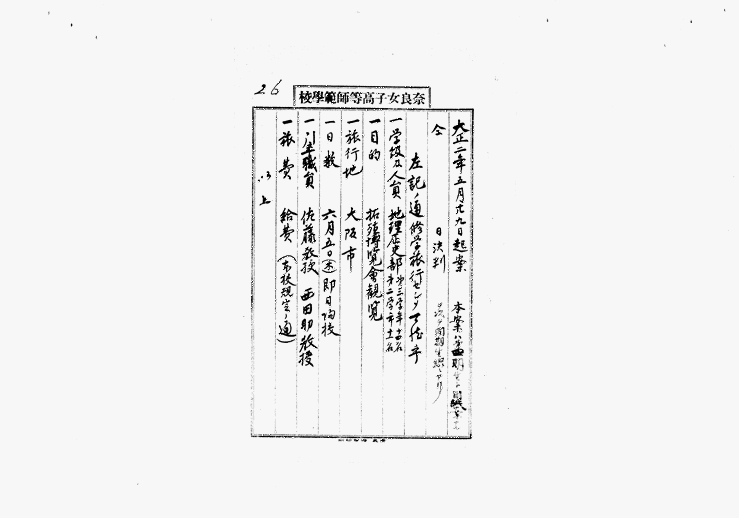 26
奈良女子高等師範學校
大正二年五月廿九日起案
仝 日決判
左記ノ通修学旅行セシメ
一学級及人員 地理歴史部 第三学年
第二学年
一目的 拓殖博覧會観覧
一旅行地 大阪市
一日数 六月五日(木)即日帰校
一引率職員 佐藤教授 西田助教授
一旅費 給費(本校規定ノ通)
以上